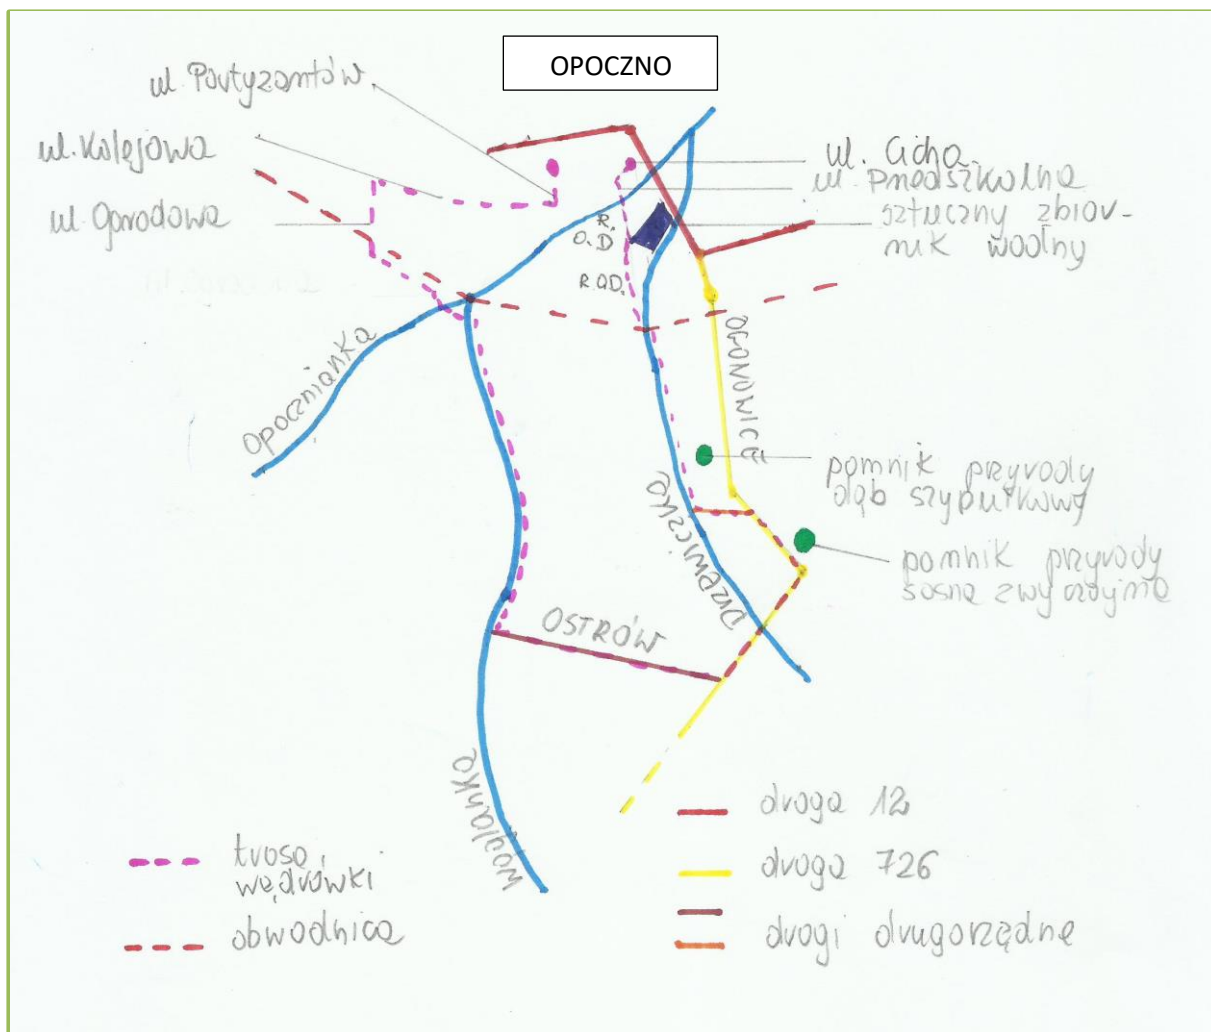 OPOCZNO
ul. Partyzantów.
ul. Kolejowa
ul. Ogrodowa
ul. Cicha
ul. Przedszkolna
sztuczny zbior-
nik wodny
R.
O.D
R.O.D.
Opocznianka
OGONOWICE
pomnik przyrody
dąb szypułkowy
DRZEWICZKA
pomnik przyrody
sosna zwyczajna
OSTRÓW
Wąglanka
trasa
wędrówki
obwodnica
droga 12
droga 726
drogi drugorzędne